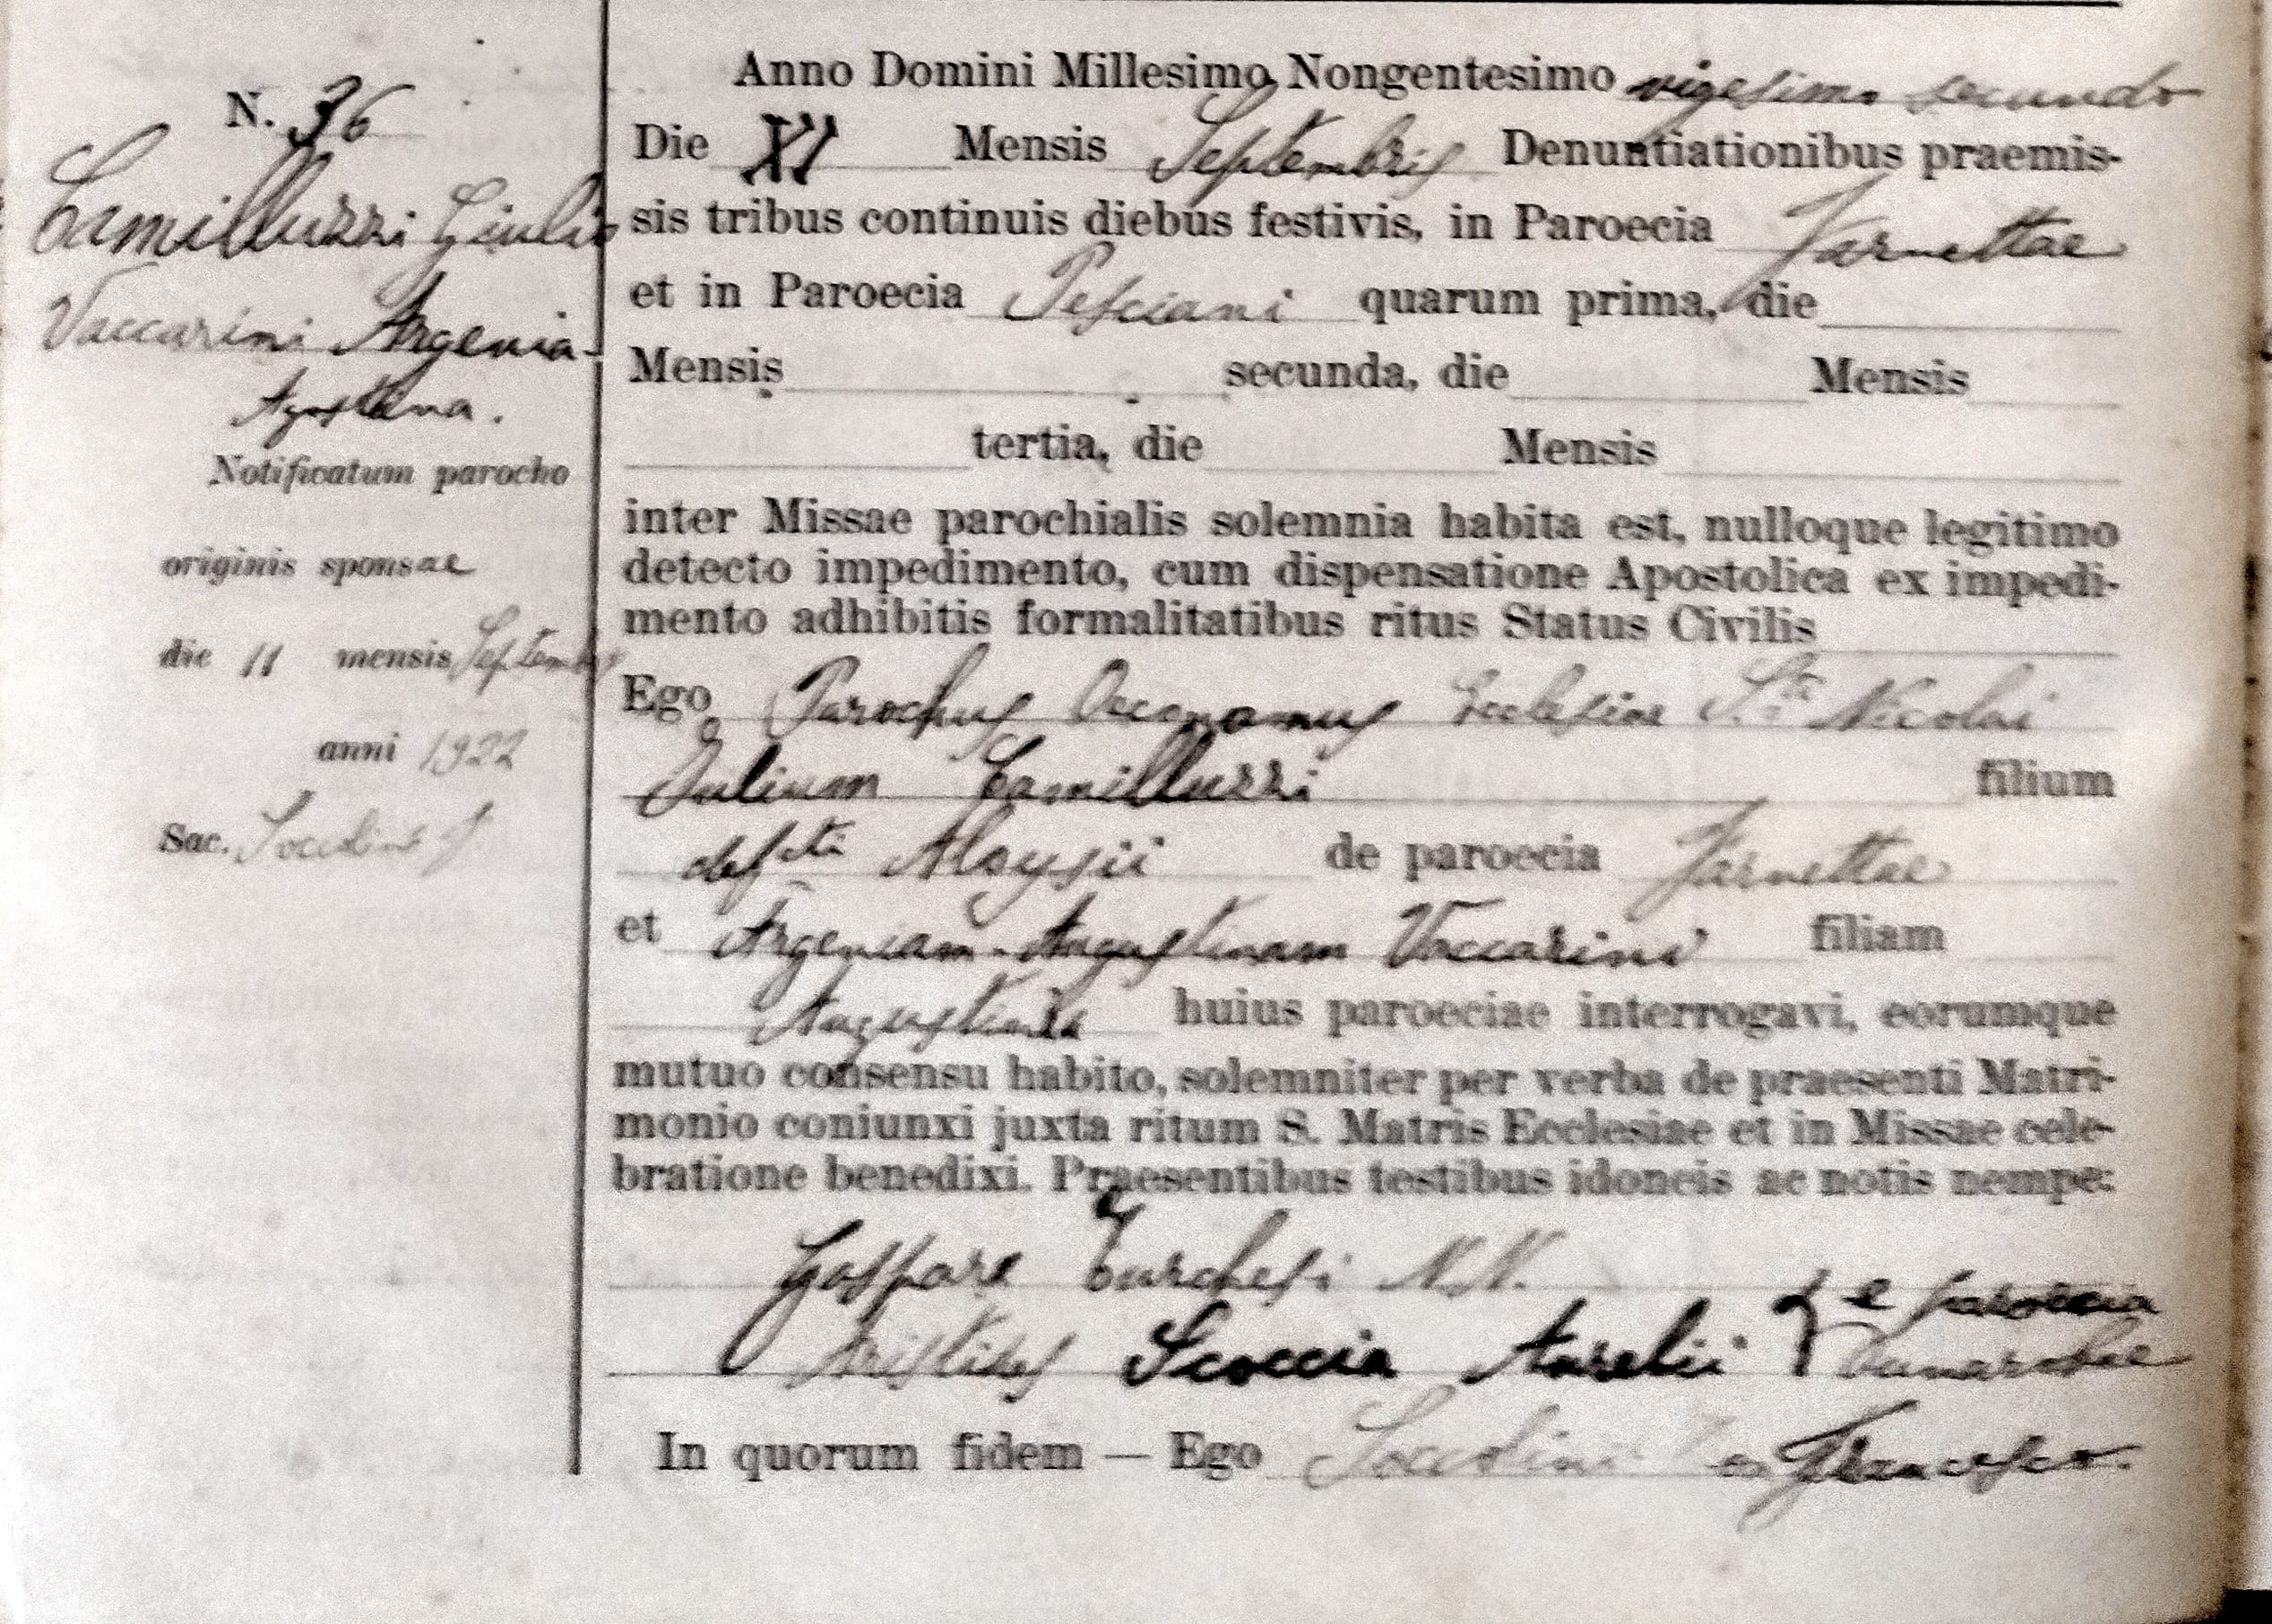 N. 36
Camilluzzi Giulio
Vaccarini Argenia-
Agostina.
Notificatum parocho
originis sponsae
die 11 mensis Septembr
anni 1922
Sac.
Anno Domini Millesimo Nongentesimo vigesimo secundo
Die XI Mensis Septembris Denuntiationibus praemis-
sis tribus continuis diebus festivis, in Paroecia Varnettae
et in Paroecia Pesciani quarum prima, die
Mensis secunda, die Mensis
tertia, die Mensis
inter Missae parochialis solemnia habita est, nulloque legitimo
detecto impedimento, cum dispensatione Apostolica ex impedi-
mento adhibitis formalitatibus ritus Status Civilis
Ego Parochus Oeconomus Ecclesiae Sti Nicolai
Julium Camilluzzi filium
defcti Aloysii de paroecia Varnettae
et Argeniam-Augustinam Vaccarini filiam
Augustini huius paroeciae interrogavi, eorumque
mutuo consensu habito, solemniter per verba de praesenti Matri-
monio coniunxi juxta ritum S. Matris Ecclesiae et in Missae cele-
bratione benedixi. Praesentibus testibus idoneis ac notis nempe:
Gaspare Turchesi N.N.
Aristides Scoccia Aurelii } e paroecia
In quorum fidem — Ego Francesco.